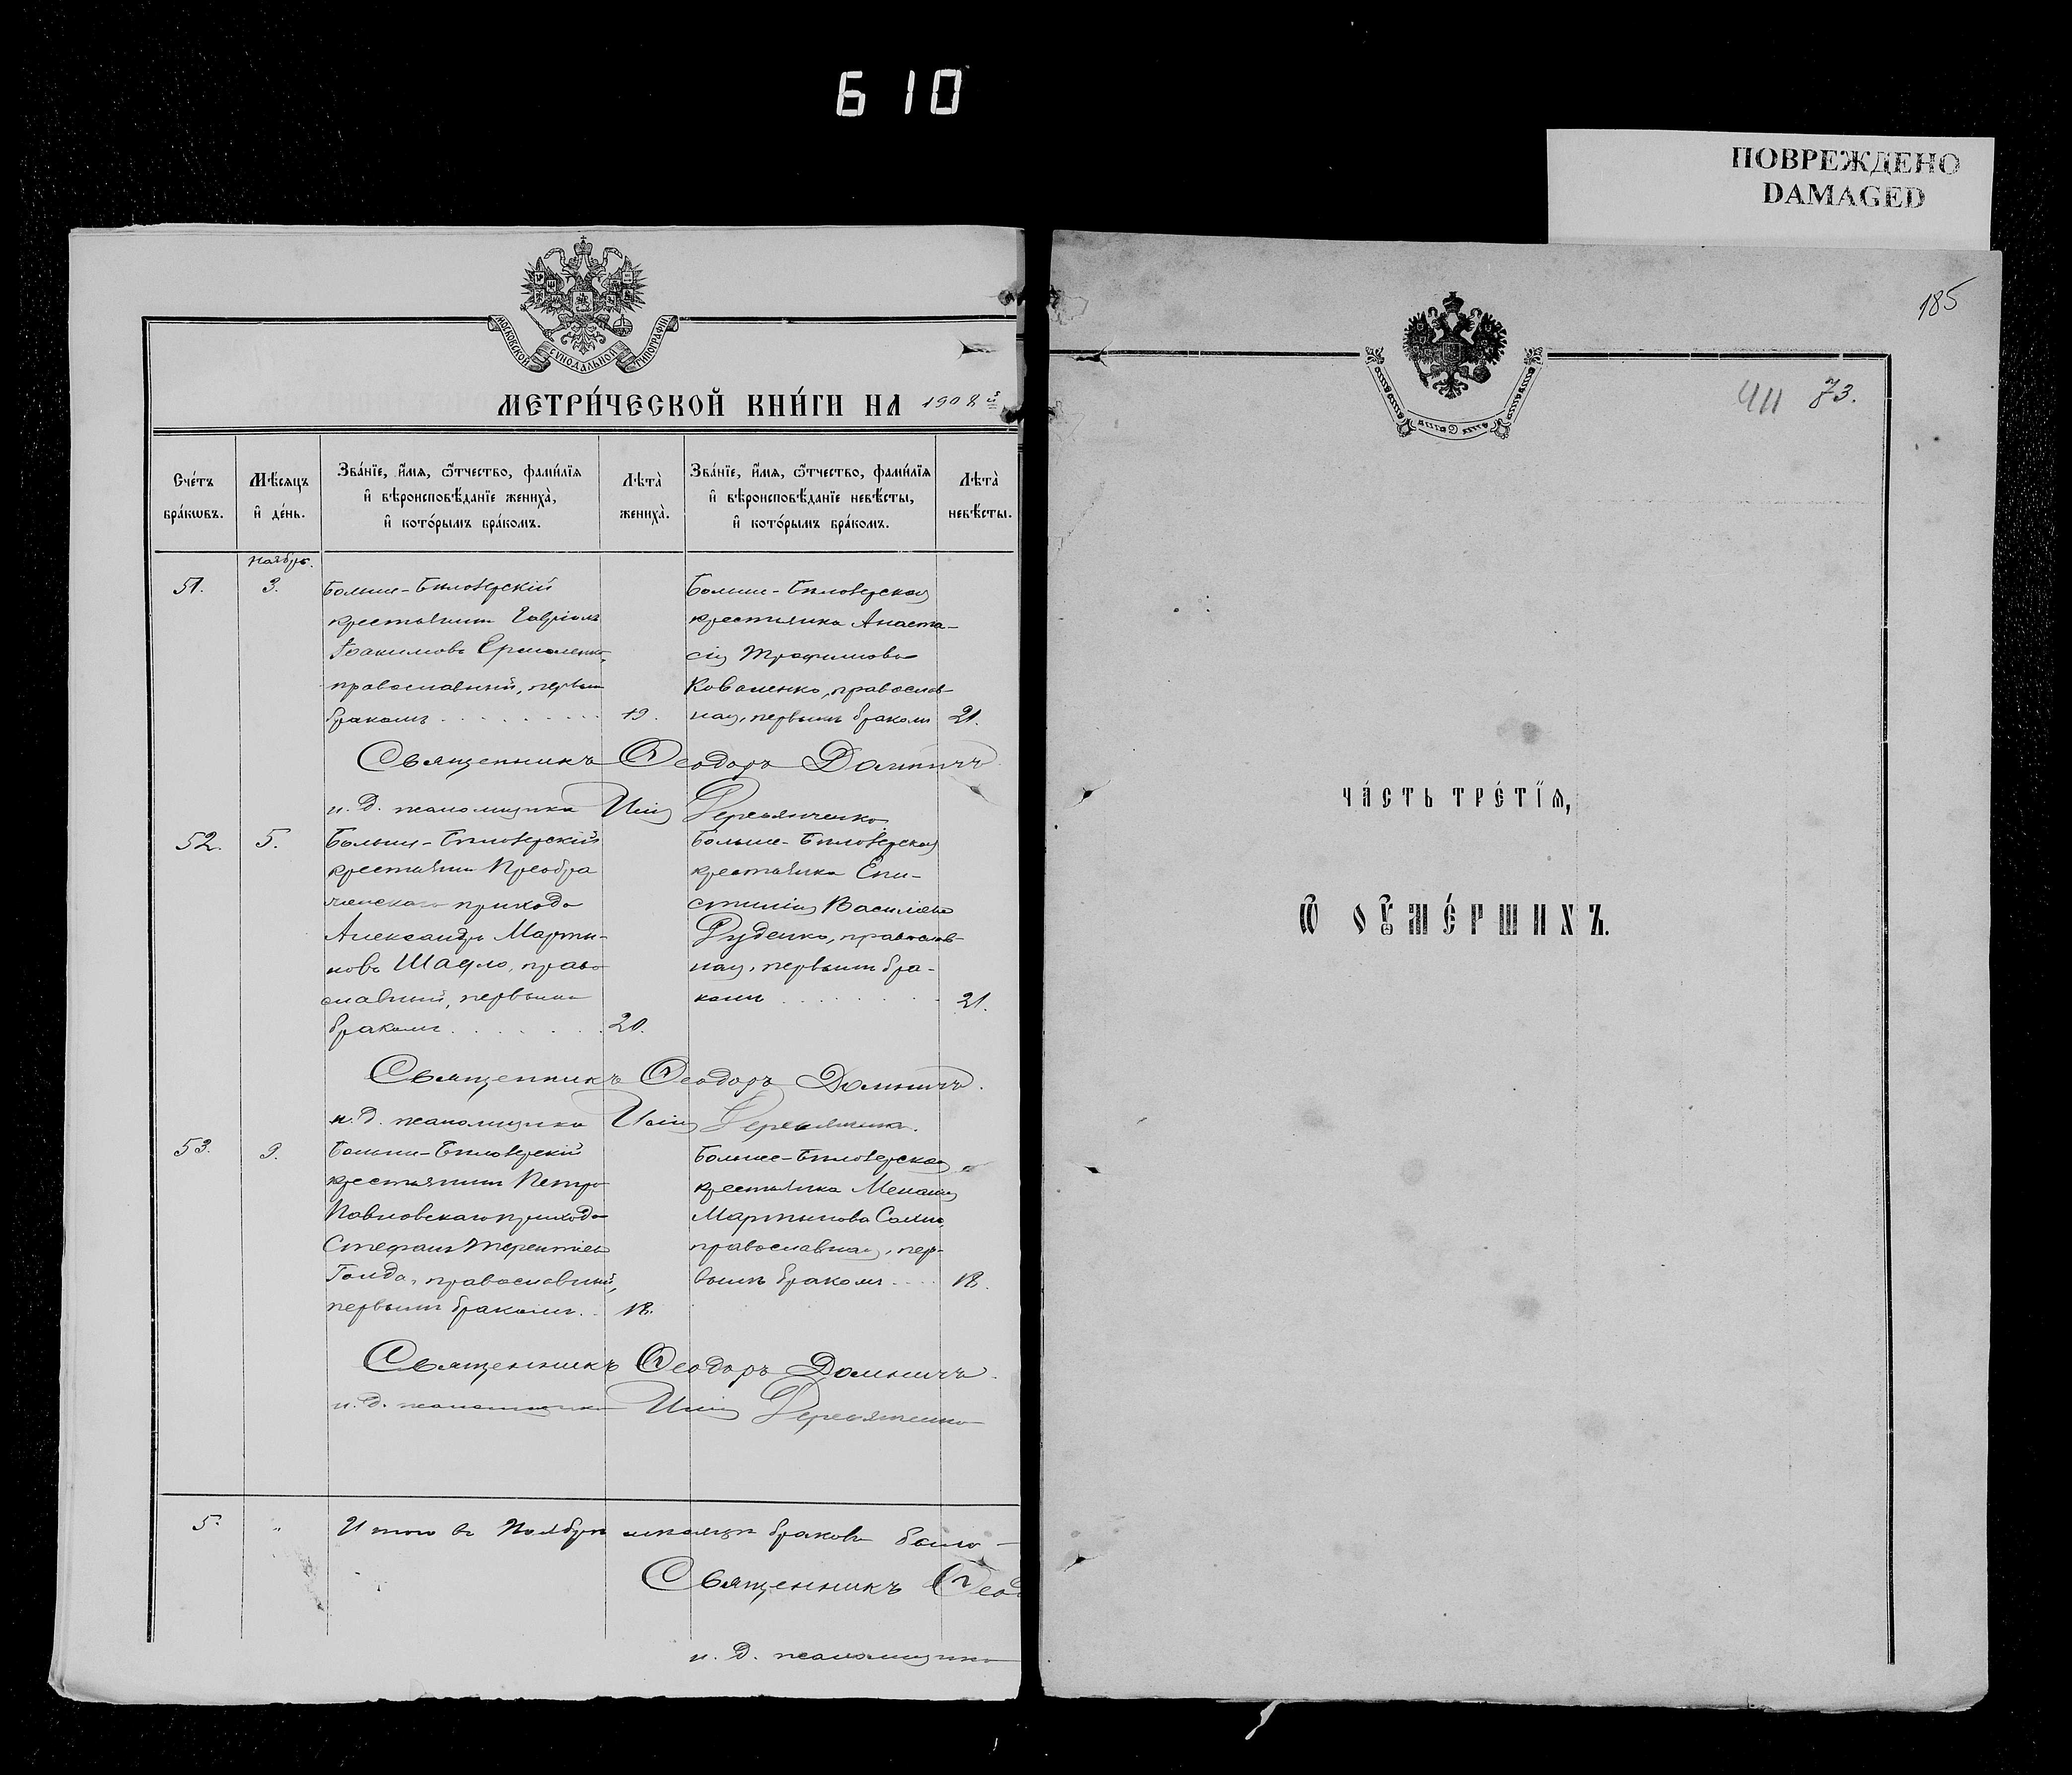 6 10
ПОВРЕЖДЕНО
DAMAGED
МОСКОВСКОЙ СѴНОДАЛЬНОЙ ТИПОГРАФІИ
МЕТРИ́ЧЕСКОЙ КНИ́ГИ НА 1908 й
Сче́тъ бра́кѡвъ.
Мѣ́сяцъ и҆ де́нь.
Зва́нїе, и҆́мѧ, ѻ҆́тчество, фами́лїѧ и҆ вѣроисповѣ́данїе жениха̀, и҆ кото́рымъ бра́комъ.
Лѣта̀ жениха̀.
Зва́нїе, и҆́мѧ, ѻ҆́тчество, фами́лїѧ и҆ вѣроисповѣ́данїе невѣ́сты, и҆ кото́рымъ бра́комъ.
Лѣта̀ невѣ́сты.
Ноябрь.
51.
3.
Больше-Бѣлозерскій
крестьянинъ Гавріилъ
Іоакимовъ Ермоленко,
православный, первым
бракомъ
19.
Больше-Бѣлозерская
крестьянка Анаста-
сія Трофимова
Коваленко, православ-
ная, первымъ бракомъ
21.
Священникъ Ѳеодоръ Долиничъ
и. д. псаломщика Илія Деревянченко
52.
5.
Больше-Бѣлозерскій
крестьянинъ Преобра
женскаго прихода
Александръ Марти-
новъ Шацло, право
славный, первымъ
бракомъ
20.
Больше-Бѣлозерская
крестьянка Епи-
стилія Васильева
Руденко, православ-
ная, первымъ бра-
комъ
21.
Священникъ Ѳеодоръ Долиничъ.
и. д. псаломщика Илія Деревянченко.
53.
9.
Больше-Бѣлозерскій
крестьянинъ Петро
Павловскаго прихода
Стефанъ Терентіевъ
Гонда, православный,
первымъ бракомъ.
18.
Больше-Бѣлозерская
крестьянка Меланія
Мартынова
православная, пер-
вымъ бракомъ
18.
Священникъ Ѳеодоръ Долиничъ.
и. д. псаломщика Илія Деревянченко
5.
"
Итого въ Ноябрѣ мѣсяцѣ браковъ было -
Священникъ Ѳеод
и. д. псаломщика
185
411 73.
ЧА́СТЬ ТРЕ́ТЇѦ,
Ѡ҆ ОУ҆МЕ́РШИХЪ.